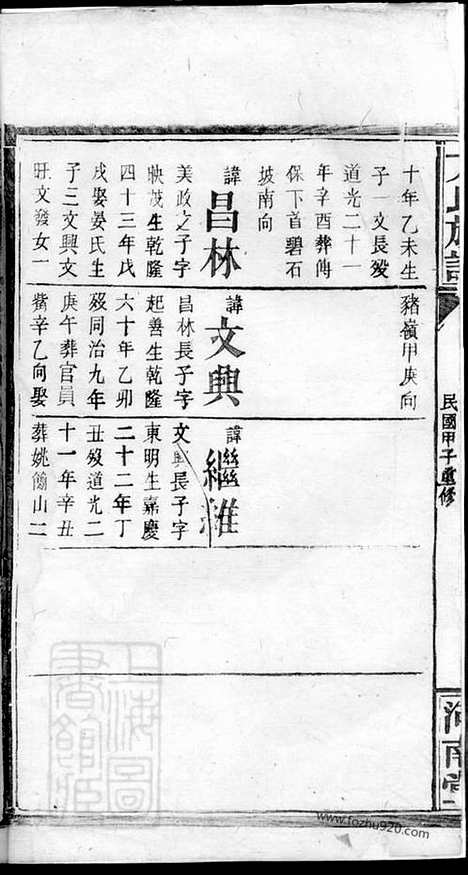 十年乙未生
子一文長歿
道光二十一
年辛酉葬傅
保下首碧石
坡南向
諱昌林
美政之子字
映茂生乾隆
四十三年戊
戌娶晏氏生
子三文興文
旺文發女一
豬嶺甲庚向
諱文興
昌林長子字
起善生乾隆
六十年乙卯
歿同治九年
庚午葬官員
觜辛乙向娶
諱繼
文興長子字
東明生嘉慶
二十二年丁
丑歿道光二
十一年辛丑
葬姚鄃山二
氏族譜
民國甲子重修
河南堂
上海圖書館藏
www.fozhu920.com